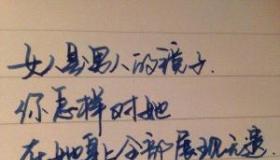 女人是男人的镜子.
你怎样对她
在她身上全部展现无遗.